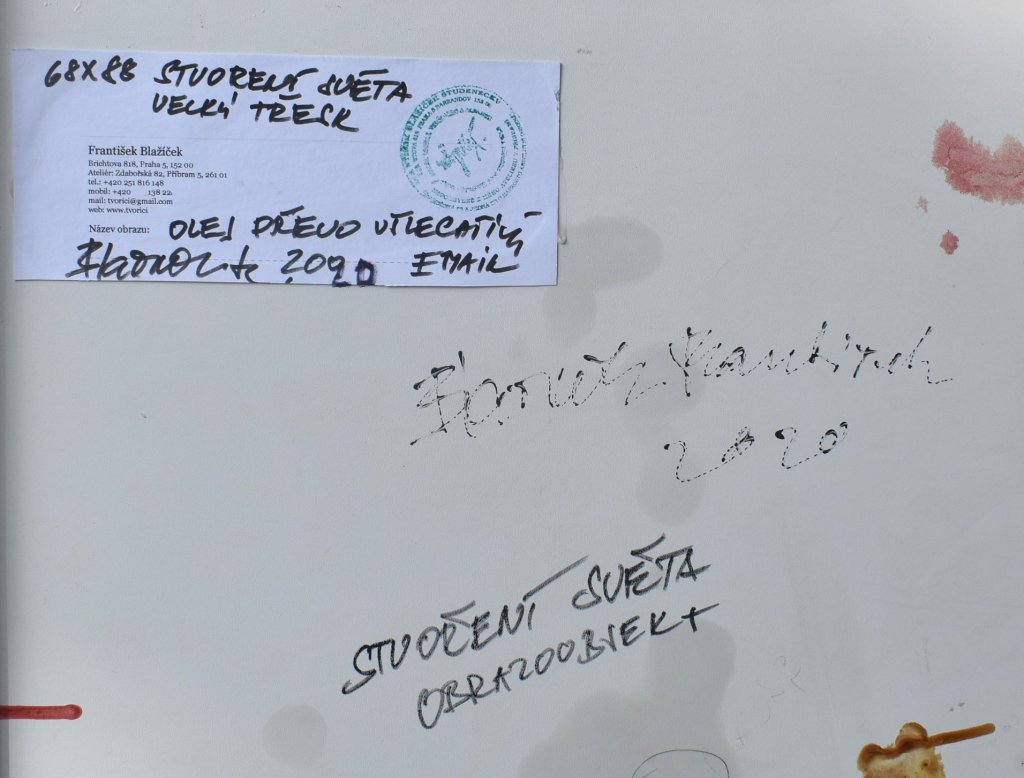 68X88 STVOŘENÍ SVĚTA
VELKÝ TŘESK
František Blažíček
Brichtova 818, Praha 5, 152 00
Ateliér: Zdabořská 82, Příbram 5, 261 01
tel.: +420 251 816 148
mobil: +420 138 22
mail: tvorici@gmail.com
web: www.tvorici
Název obrazu: OLEJ DŘEVO
EMAIL
2020
2020
STVOŘENÍ SVĚTA
OBRAZOOBJEKT